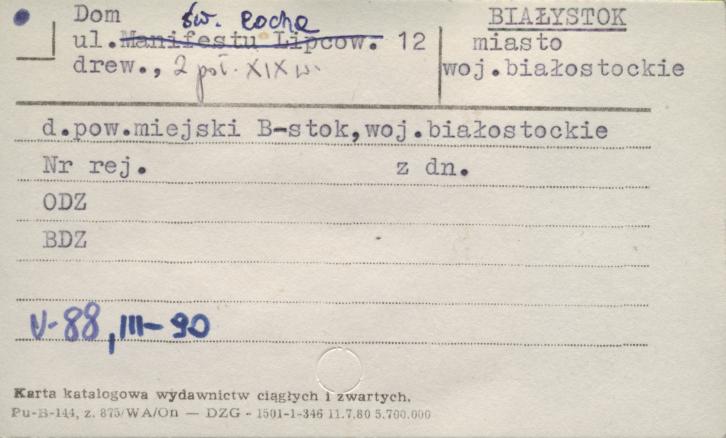 Dom św. Rocha BIAŁYSTOK
ul. Manifestu Lipcow. 12 miasto
drew., 2 poł. XIX w. woj.białostockie
d.pow.miejski B-stok,woj.białostockie
Nr rej. z dn.
ODZ
BDZ
V-88, III-90
Karta katalogowa wydawnictw ciągłych i zwartych.
Pu-B-144, z. 875/WA/On — DZG - 1501-1-346 11.7.80 5.700.000